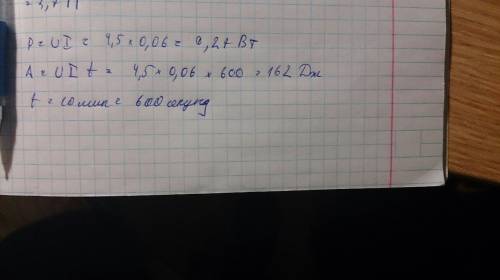 P = UI = 4,5 × 0,06 = 0,27 Вт
A = UI t = 4,5 × 0,06 × 600 = 162 Дж
t = 10 мин = 600 секунд